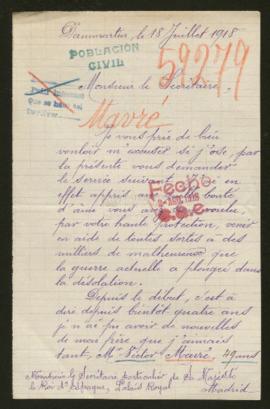 Dammartin, le 18 Juillet 1918
POBLACIÓN
CIVIL
59279
Monsieur le Secrétaire,
Mavré
Je vous prie de bien
vouloir m'excuser si j'ose, par
la présente vous demander
le service suivant. J'ai en
effet appris
d'âme vous
par votre haute protection, venir
en aide de toutes sortes à des
milliers de malheureux que
la guerre actuelle a plongés dans
la désolation.
Fecha
Depuis le début, c'est à
dire depuis bientôt quatre ans
je n'ai pu avoir de nouvelles
de mon frère que j'aimais
tant, Mr Victor Mavré, 29 ans
Monsieur le Secrétaire particulier de Sa Majesté
le Roi d'Espagne, Palais Royal
Madrid